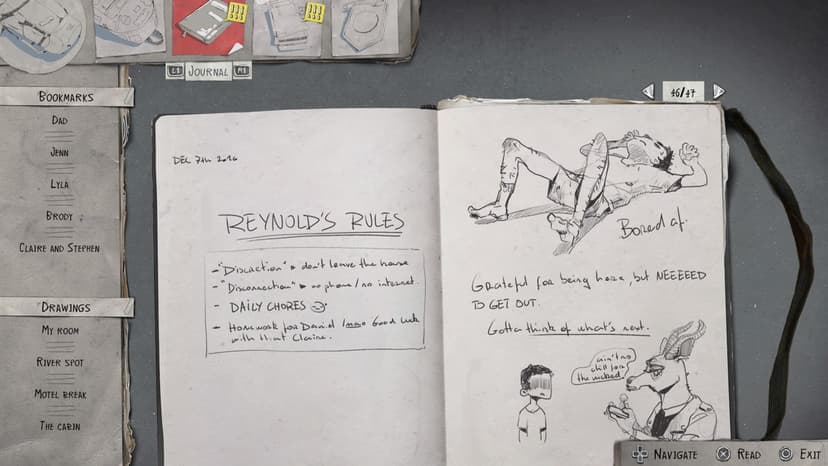 L1 JOURNAL R1
BOOKMARKS
DAD
JENN
LYLA
BRODY
CLAIRE AND STEPHEN
DRAWINGS
MY ROOM
RIVER SPOT
MOTEL BREAK
THE CABIN
46/47
DEC 7th 2016
REYNOLD'S RULES
- "Discretion" → don't leave the house
- "Disconnection" → no phone/no internet.
- DAILY CHORES
- Homework for Daniel Good luck
with that Claire.
Bored af.
Grateful for being here, but NEEEEED
TO GET OUT.
Gotta think of what's next.
ain't no
chill for
the wicked
NAVIGATE READ EXIT